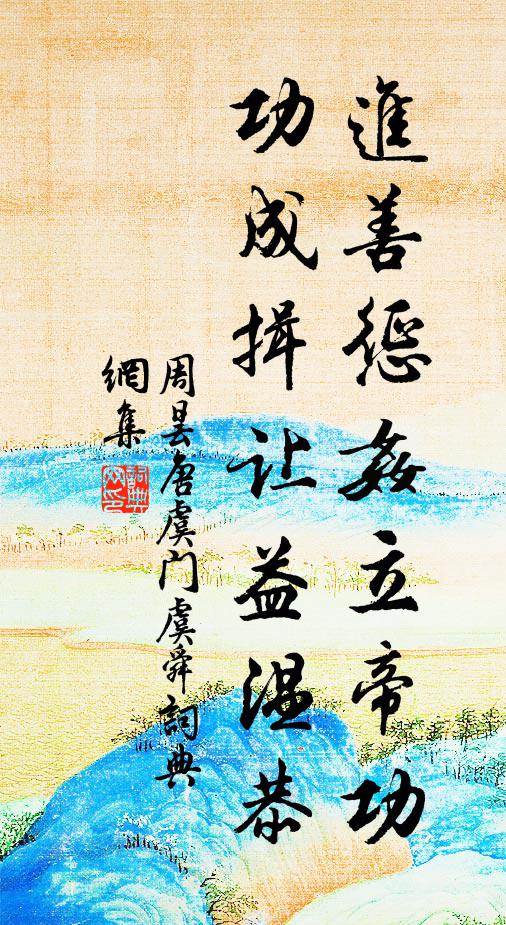 進善懲姦立帝功
功成揖让益温恭
周昙唐虞门虞舜詞典
網集